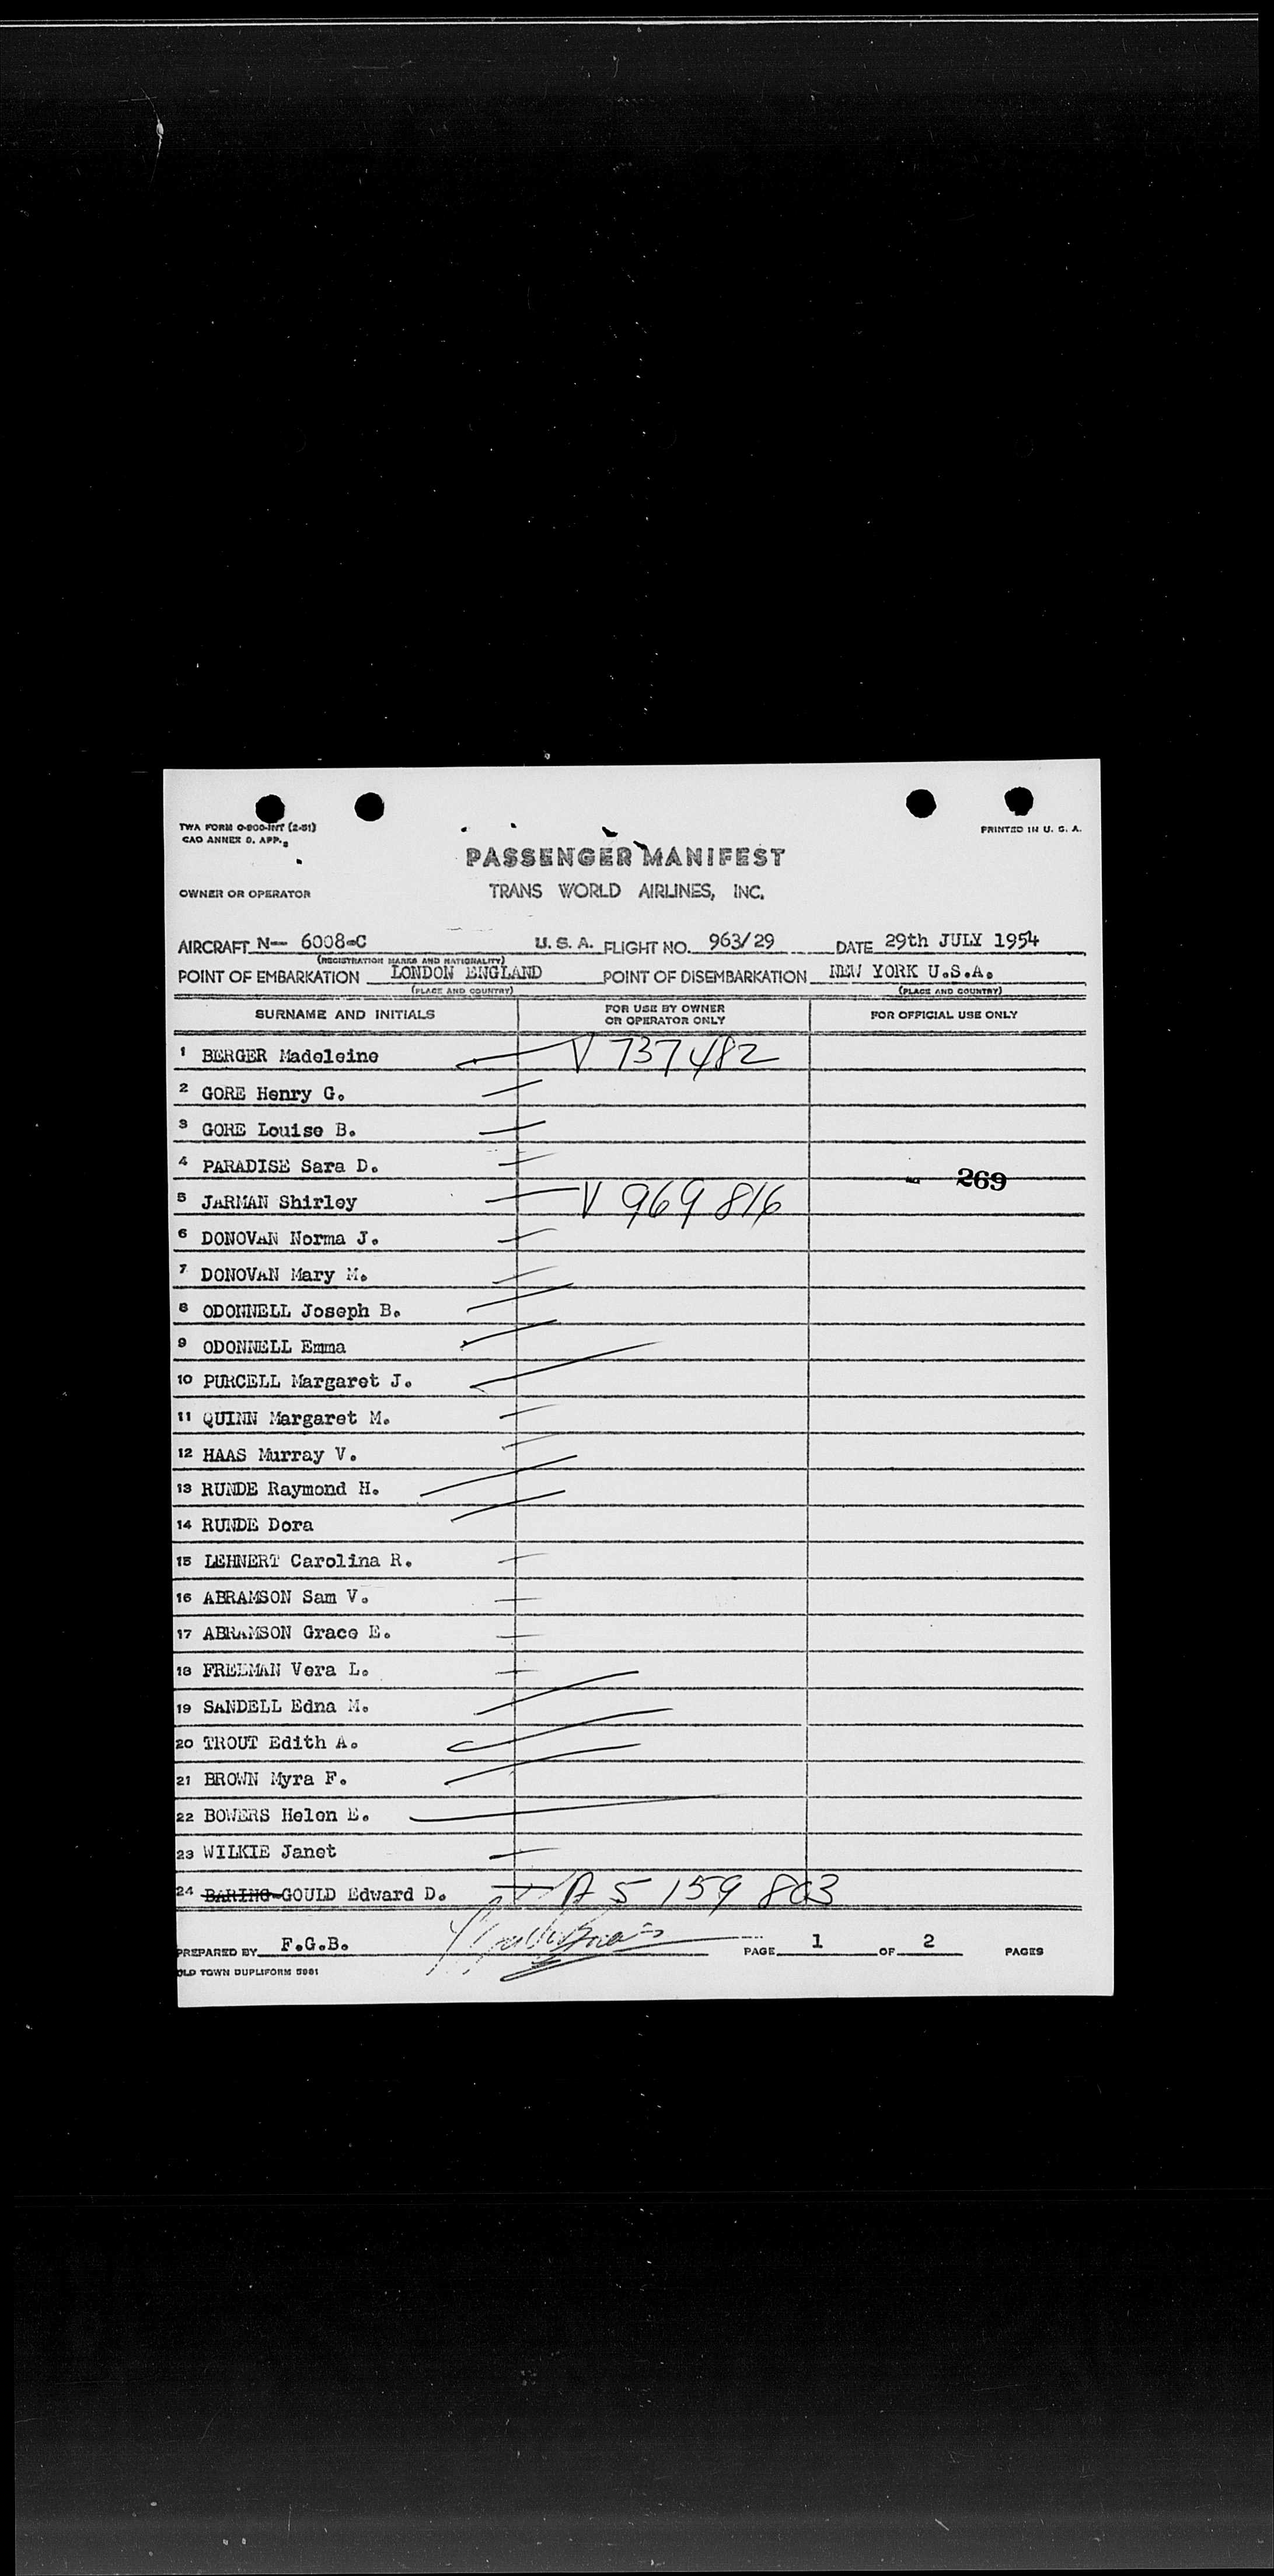 TWA FORM O-800-INT (2-51)
CAO ANNEX 9, APP.
PRINTED IN U. S. A.
PASSENGER MANIFEST
OWNER OR OPERATOR TRANS WORLD AIRLINES, INC.
AIRCRAFT N-- 6008-C U. S. A. FLIGHT NO. 963/29 DATE 29th JULY 1954
(REGISTRATION MARKS AND NATIONALITY)
POINT OF EMBARKATION LONDON ENGLAND POINT OF DISEMBARKATION NEW YORK U.S.A.
(PLACE AND COUNTRY) (PLACE AND COUNTRY)
SURNAME AND INITIALS FOR USE BY OWNER OR OPERATOR ONLY FOR OFFICIAL USE ONLY
1 BERGER Madeleine V 737482
2 GORE Henry G.
3 GORE Louise B.
4 PARADISE Sara D.
269
5 JARMAN Shirley V 969 816
6 DONOVAN Norma J.
7 DONOVAN Mary M.
8 ODONNELL Joseph B.
9 ODONNELL Emma
10 PURCELL Margaret J.
11 QUINN Margaret M.
12 HAAS Murray V.
13 RUNDE Raymond H.
14 RUNDE Dora
15 LEHNERT Carolina R.
16 ABRAMSON Sam V.
17 ABRAMSON Grace E.
18 FREEMAN Vera L.
19 SANDELL Edna M.
20 TROUT Edith A.
21 BROWN Myra F.
22 BOWERS Helen E.
23 WILKIE Janet
24 BARING-GOULD Edward D. A 5 159 803
PREPARED BY F.G.B. PAGE 1 OF 2 PAGES
OLD TOWN DUPLIFORM 5981